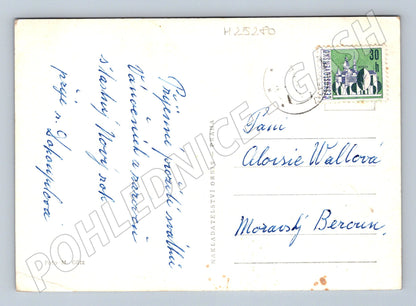 H25280
30
ČESKOSLOVENSKO
Příjemné prožití svátků
Vánočních a zároveň
šťastný Nový rok
přeje n. Dokoupilova
Foto M. Cura
NAKLADATELSTVÍ ORBIS PRAHA
Paní
Aloisie Wallová
Moravský Beroun.
POHLEDNICE-CASH